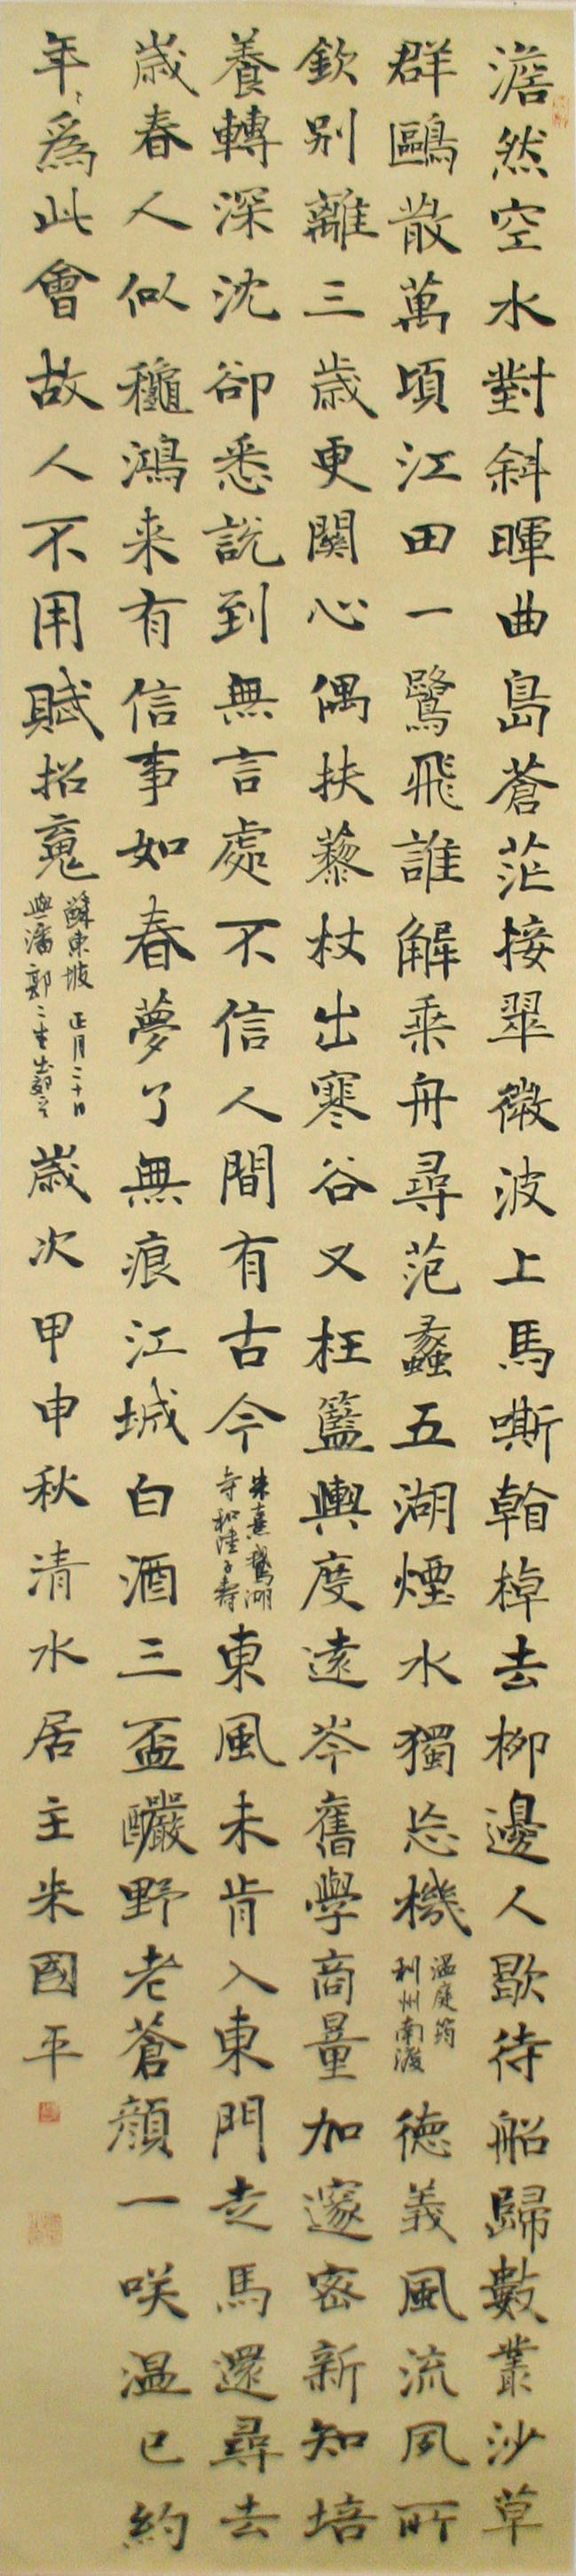 澹然空水對斜暉曲島蒼茫接翠微波上馬嘶看棹去柳邊人歇待船歸數叢沙草
群鷗散萬頃江田一鷺飛誰解乘舟尋范蠡五湖煙水獨忘機
溫庭筠
利州南渡
德義風流夙所
欽別離三歲更關心偶扶藜杖出寒谷又枉籃輿度遠岑舊學商量加邃密新知培
養轉深沈卻悉說到無言處不信人間有古今
朱熹鵝湖
寺和陸子壽
東風未肯入東門走馬還尋去
歲春人似穐鴻来有信事如春夢了無痕江城白酒三盃釅野老蒼顏一咲溫已約
年〻為此會故人不用賦招䰟
蘇東坡 正月二十日
與潘郭二生出郊
歲次甲申秋清水居主米國平